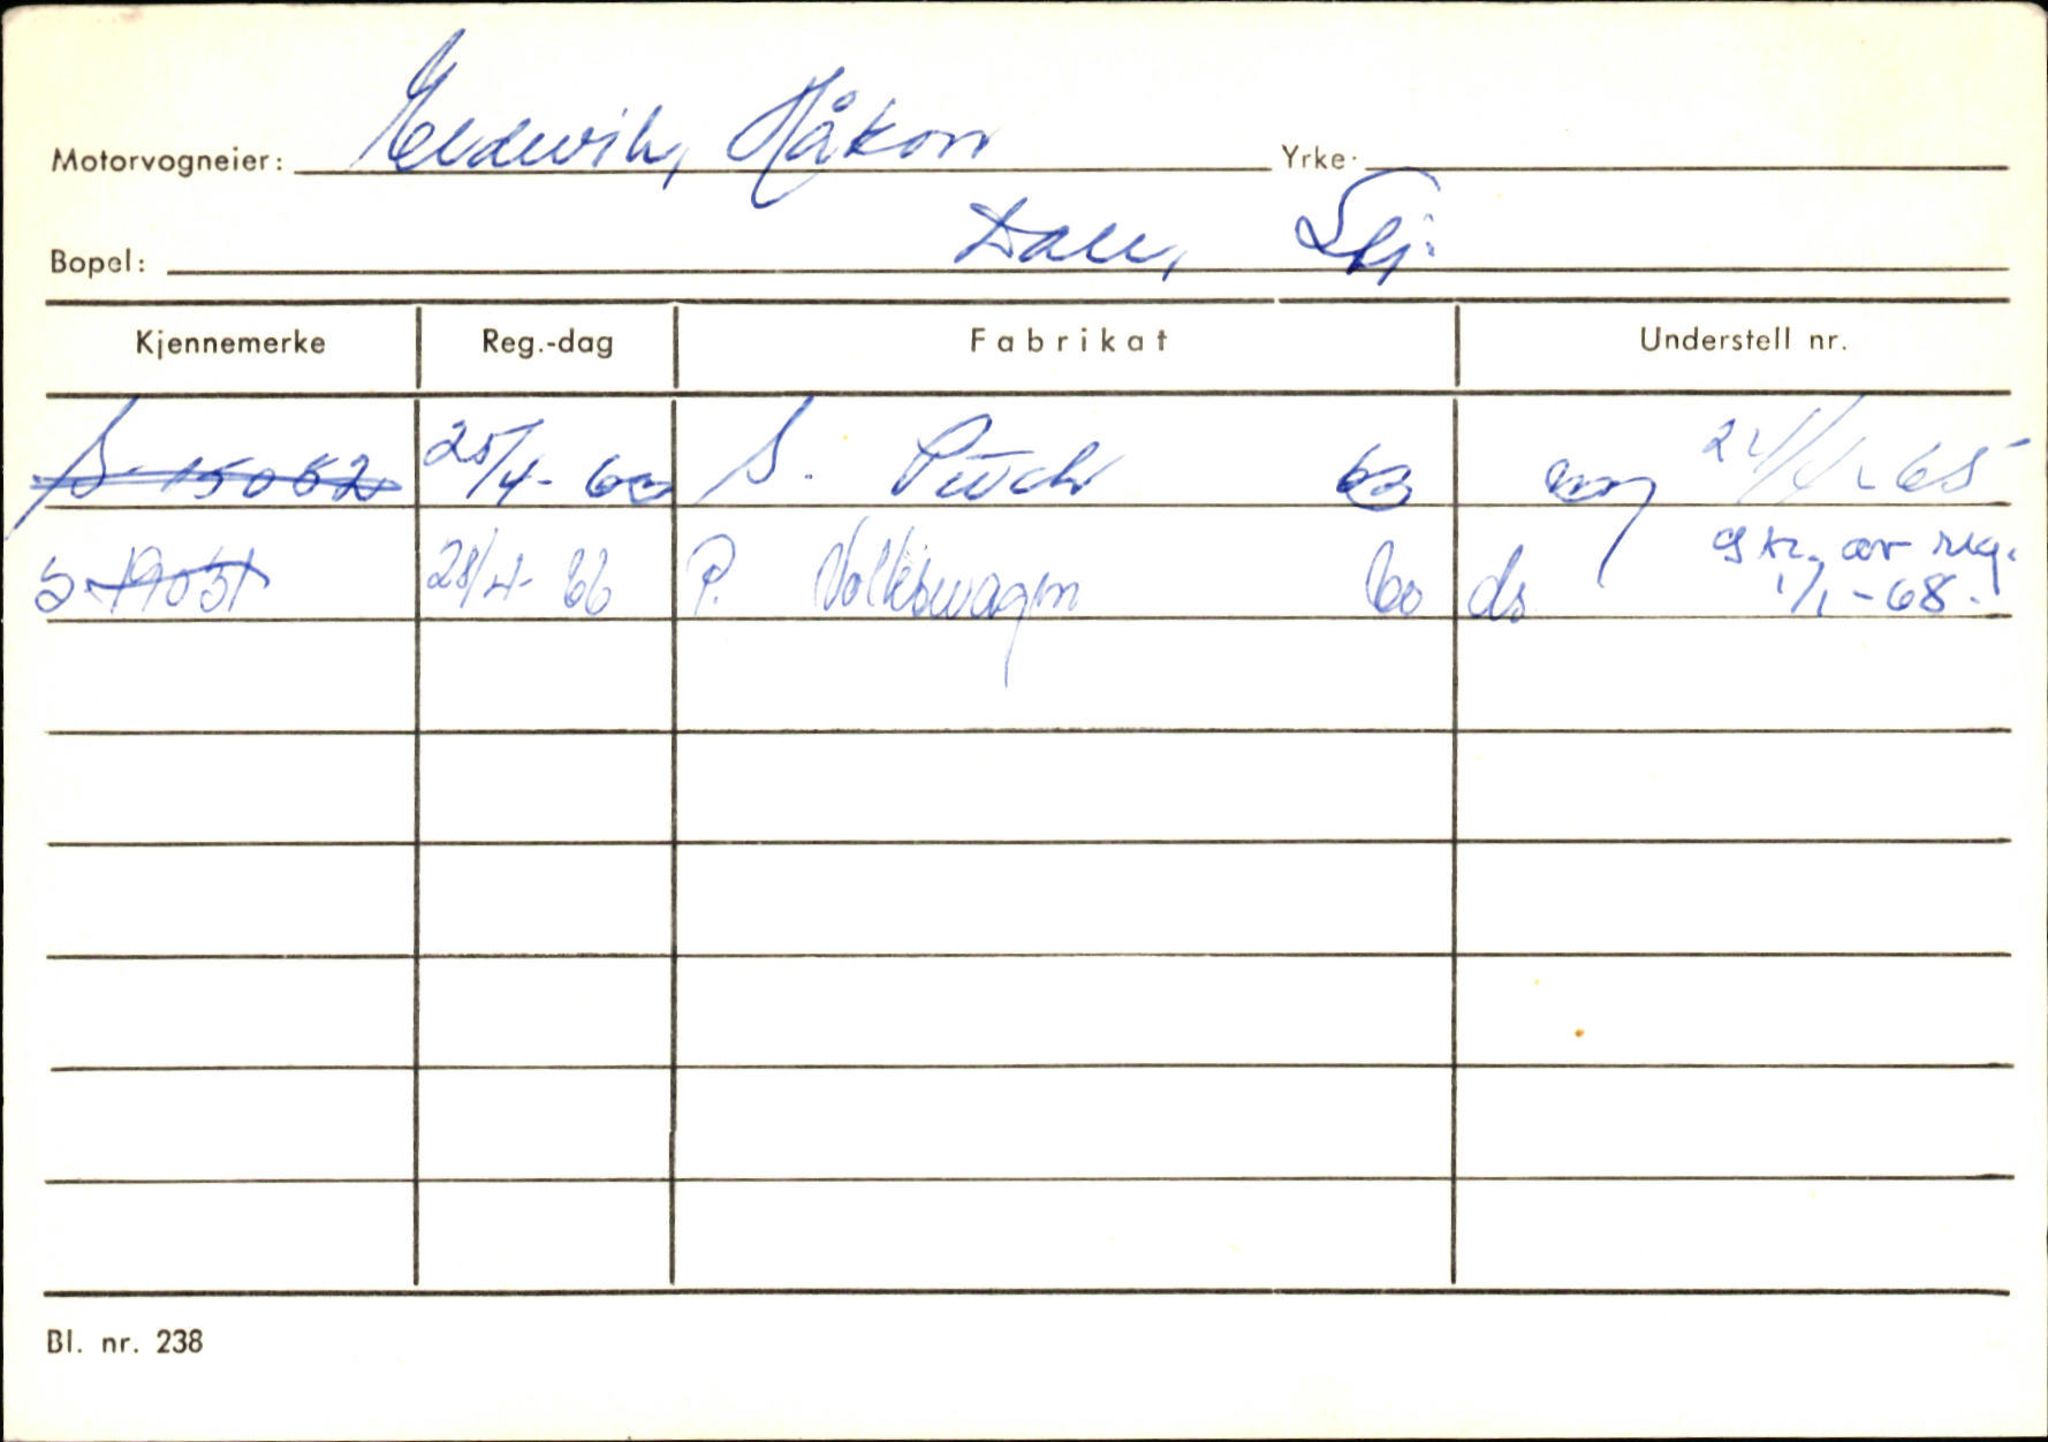 Motorvogneier: Eldevik, Håkon Yrke:
Bopel: Dale, Sfj.
Kjennemerke Reg.-dag Fabrikat Understell nr.
S-15052 25/4-63 S. Puch 63 24/4-65
S-19031 28/4-66 P. Volkswagen 60 ds str. av reg.
1/1-68.
Bl. nr. 238